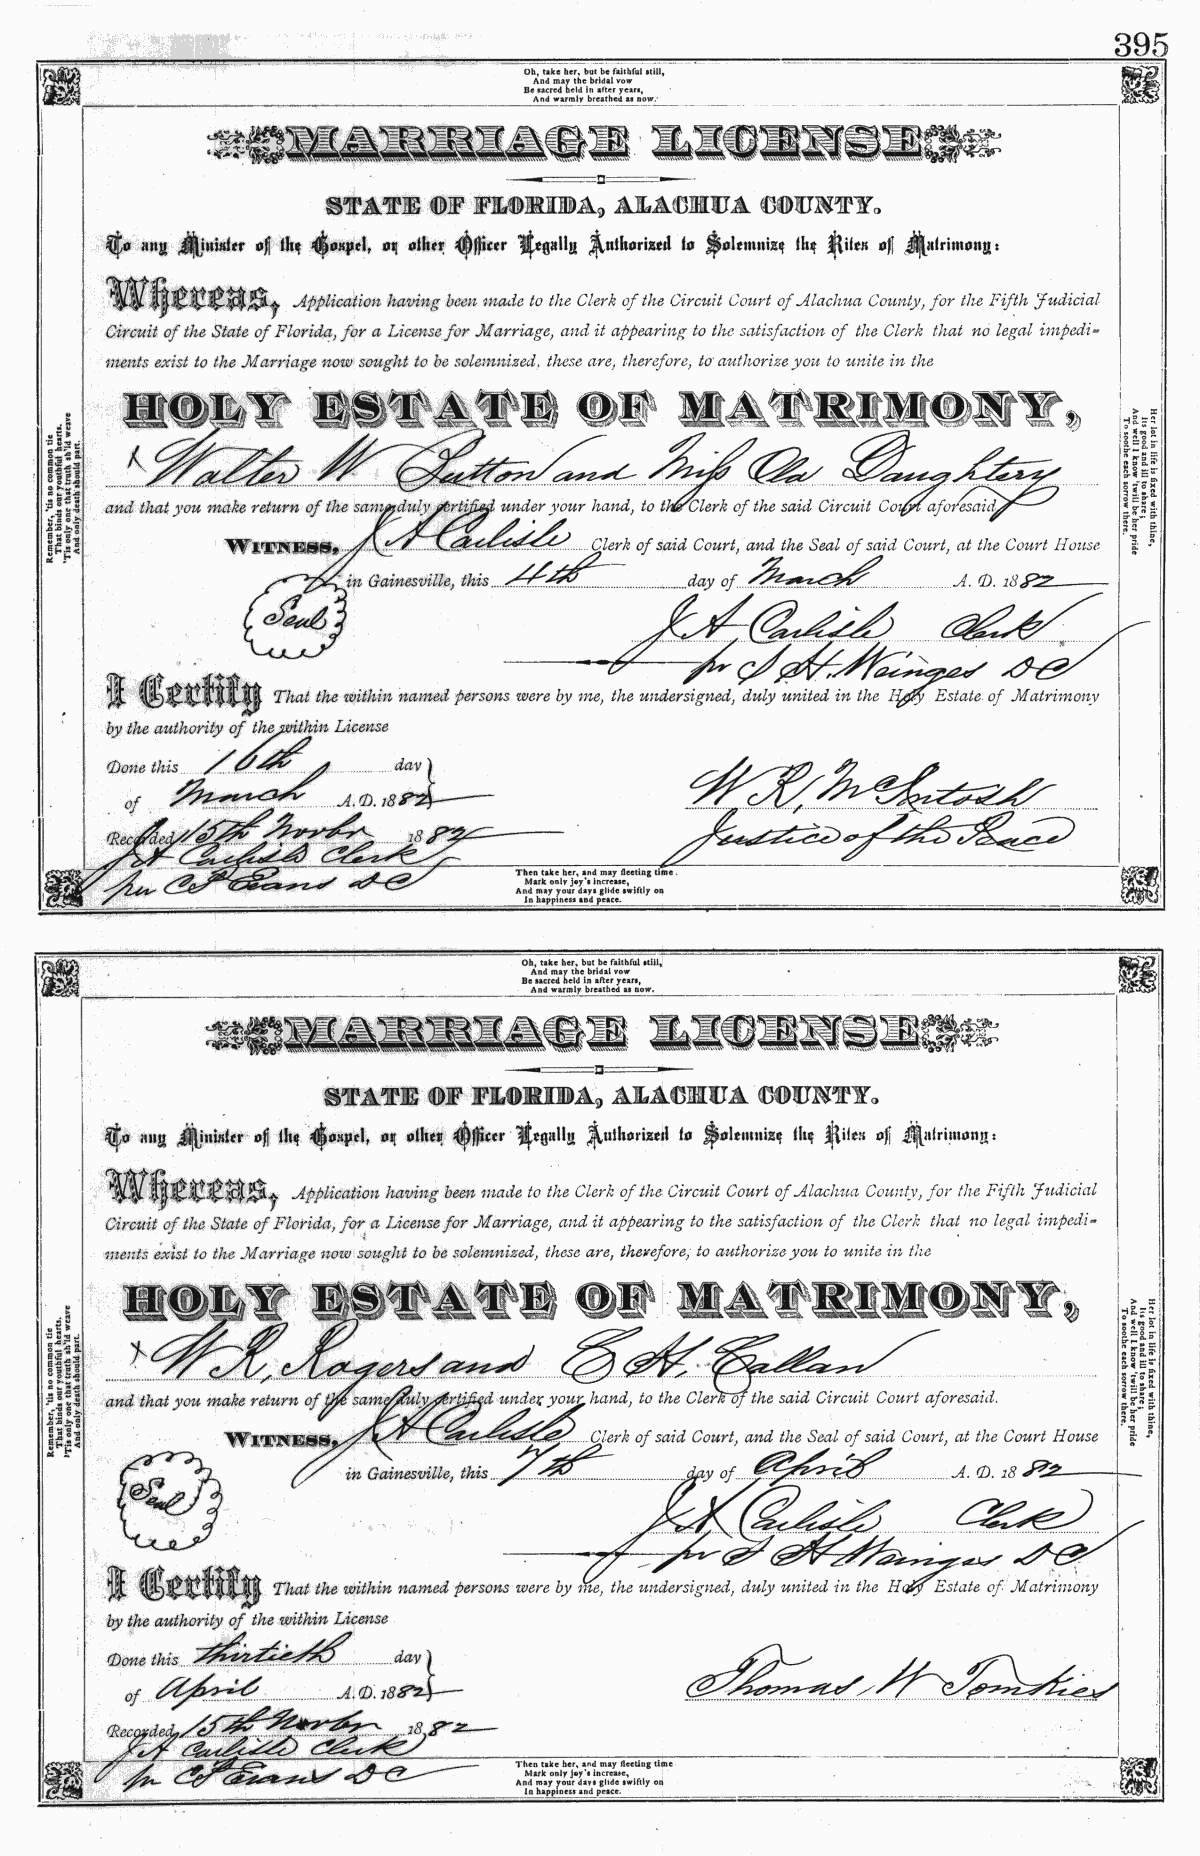 395
Oh, take her, but be faithful still,
And may the bridal vow
Be sacred held in after years,
And warmly breathed as now.
MARRIAGE LICENSE
STATE OF FLORIDA, ALACHUA COUNTY.
To any Minister of the Gospel, or other Officer Legally Authorized to Solemnize the Rites of Matrimony:
Whereas, Application having been made to the Clerk of the Circuit Court of Alachua County, for the Fifth Judicial
Circuit of the State of Florida, for a License for Marriage, and it appearing to the satisfaction of the Clerk that no legal impedi-
ments exist to the Marriage now sought to be solemnized, these are, therefore, to authorize you to unite in the
HOLY ESTATE OF MATRIMONY,
x Walter W Sutton and Miss Ola Daughtery
and that you make return of the same duly certified under your hand, to the Clerk of the said Circuit Court aforesaid
WITNESS, J A Carlisle Clerk of said Court, and the Seal of said Court, at the Court House
in Gainesville, this 4th day of March A. D. 1882
Seal
J A Carlisle Clerk
pr S H. Wainges DC
I Certify That the within named persons were by me, the undersigned, duly united in the Holy Estate of Matrimony
by the authority of the within License
Done this 16th day
of March A.D. 1882
W R, McIntosh
Recorded 15th Novbr 1882
Justice of the Peace
J A Carlisle Clerk
per C P Evans DC
Then take her, and may fleeting time
Mark only joy's increase,
And may your days glide swiftly on
In happiness and peace.
Remember, 'tis no common tie
That binds our youthful hearts,
'Tis only one that truth sh'ld weave
And only death should part.
Her lot in life is fixed with thine,
Its good and ill to share;
And well I know 'twill be her pride
To soothe each sorrow there.
Oh, take her, but be faithful still,
And may the bridal vow
Be sacred held in after years,
And warmly breathed as now.
MARRIAGE LICENSE
STATE OF FLORIDA, ALACHUA COUNTY.
To any Minister of the Gospel, or other Officer Legally Authorized to Solemnize the Rites of Matrimony:
Whereas, Application having been made to the Clerk of the Circuit Court of Alachua County, for the Fifth Judicial
Circuit of the State of Florida, for a License for Marriage, and it appearing to the satisfaction of the Clerk that no legal impedi-
ments exist to the Marriage now sought to be solemnized, these are, therefore, to authorize you to unite in the
HOLY ESTATE OF MATRIMONY,
x W R, Rogers and C H, Callan
and that you make return of the same duly certified under your hand, to the Clerk of the said Circuit Court aforesaid.
WITNESS, J A Carlisle Clerk of said Court, and the Seal of said Court, at the Court House
in Gainesville, this 7th day of April A. D. 1882
Seal
J A Carlisle Clerk
pr S H Wainges DC
I Certify That the within named persons were by me, the undersigned, duly united in the Holy Estate of Matrimony
by the authority of the within License
Done this thirtieth day
of April A.D. 1882
Thomas W Tomkies
Recorded 15th Novbr 1882
J A Carlisle Clerk
pr C P Evans DC
Then take her, and may fleeting time
Mark only joy's increase,
And may your days glide swiftly on
In happiness and peace.
Remember, 'tis no common tie
That binds our youthful hearts,
'Tis only one that truth sh'ld weave
And only death should part.
Her lot in life is fixed with thine,
Its good and ill to share;
And well I know 'twill be her pride
To soothe each sorrow there.